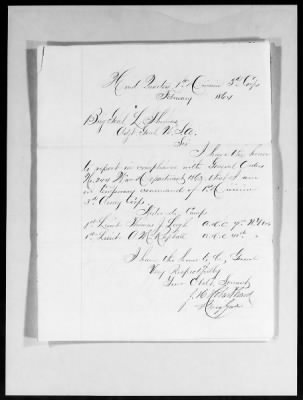 Head Quarters 1st Division 3d A. Corps
February 1864
Brig Genl L Thomas
Adjt Genl U. S. A.
Sir
I have the honor
to report in compliance with General Orders
No 244 War Department 1863 that I am
in temporary command of 1st Division
3d Army Corps
Aides de Camp
1st Lieut Thomas J Leigh A.D.C.
1st Lieut A.D.C.
I have the honor to be, General
Very Respectfully
Your Obdt Servant
J H Hobart Ward
Brig Genl